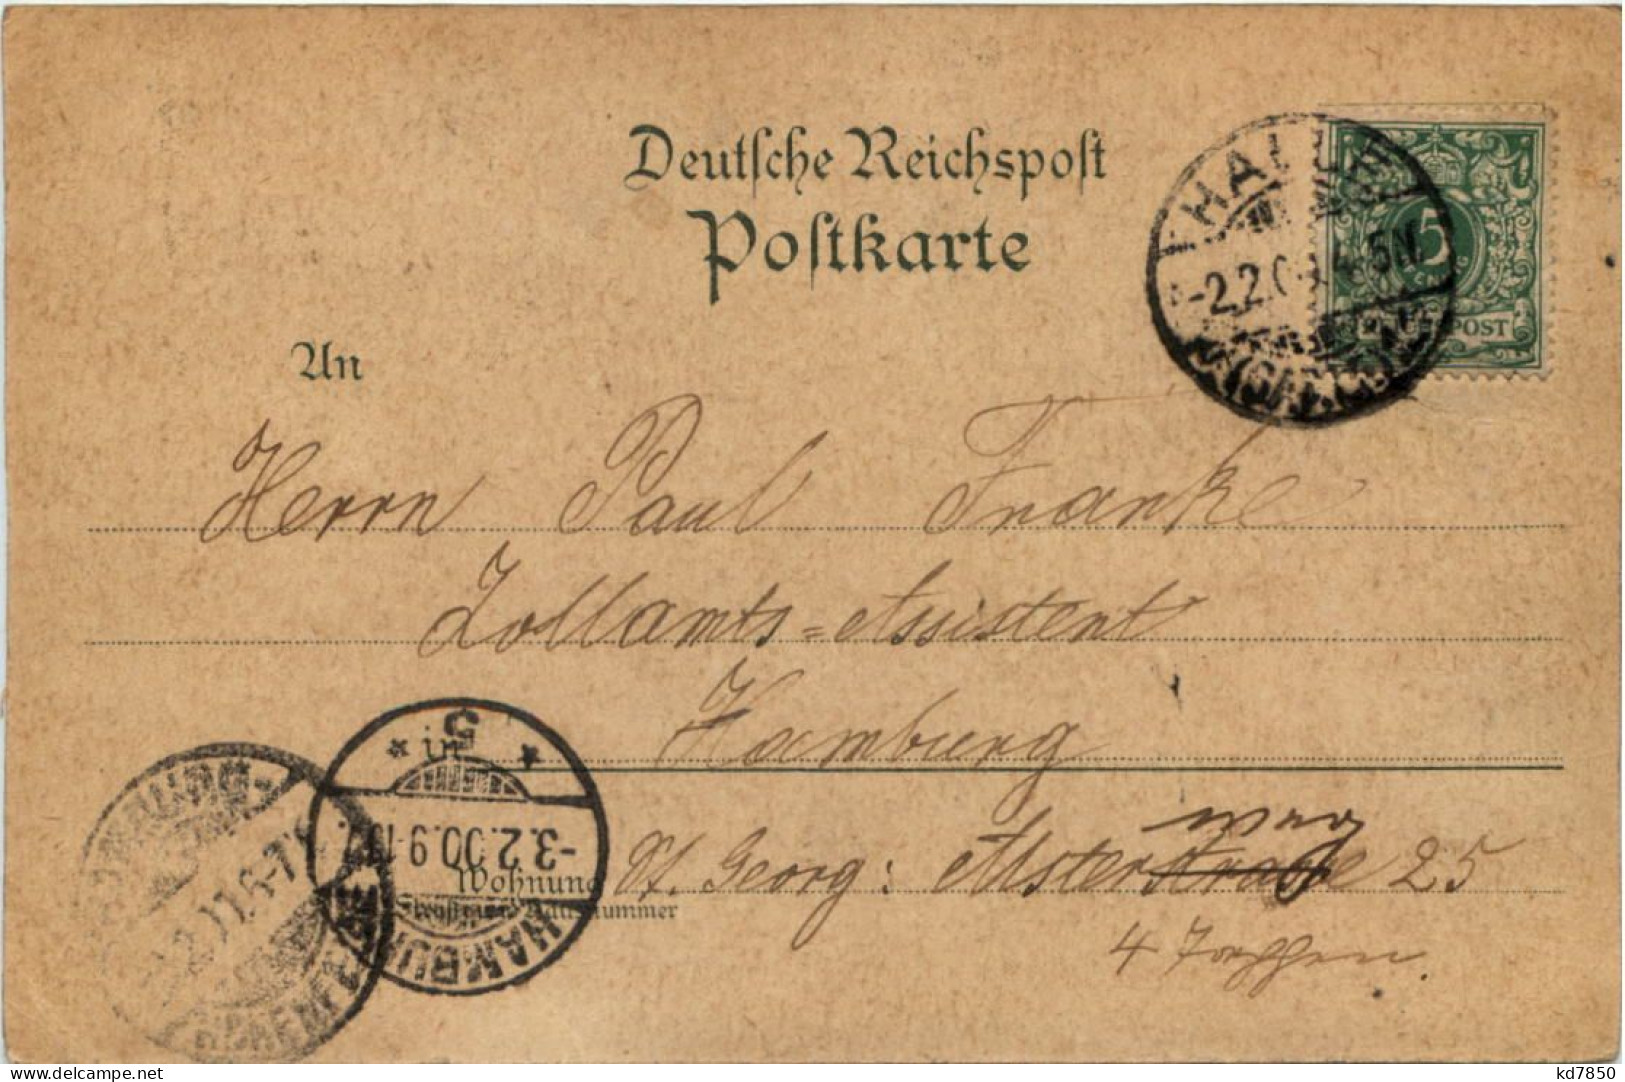 Deutsche Reichspost
Postkarte
5
POST
-2.2.0 4-5N.
An
Herrn Paul Franke
Zollamts=Assistent
in Hamburg
Wohnung St. Georg: Alsterstraße weg 25
(Straße und Hausnummer)
4 Treppen.
HAMBURG
5
-3.2.00.9-10V.
kd7850